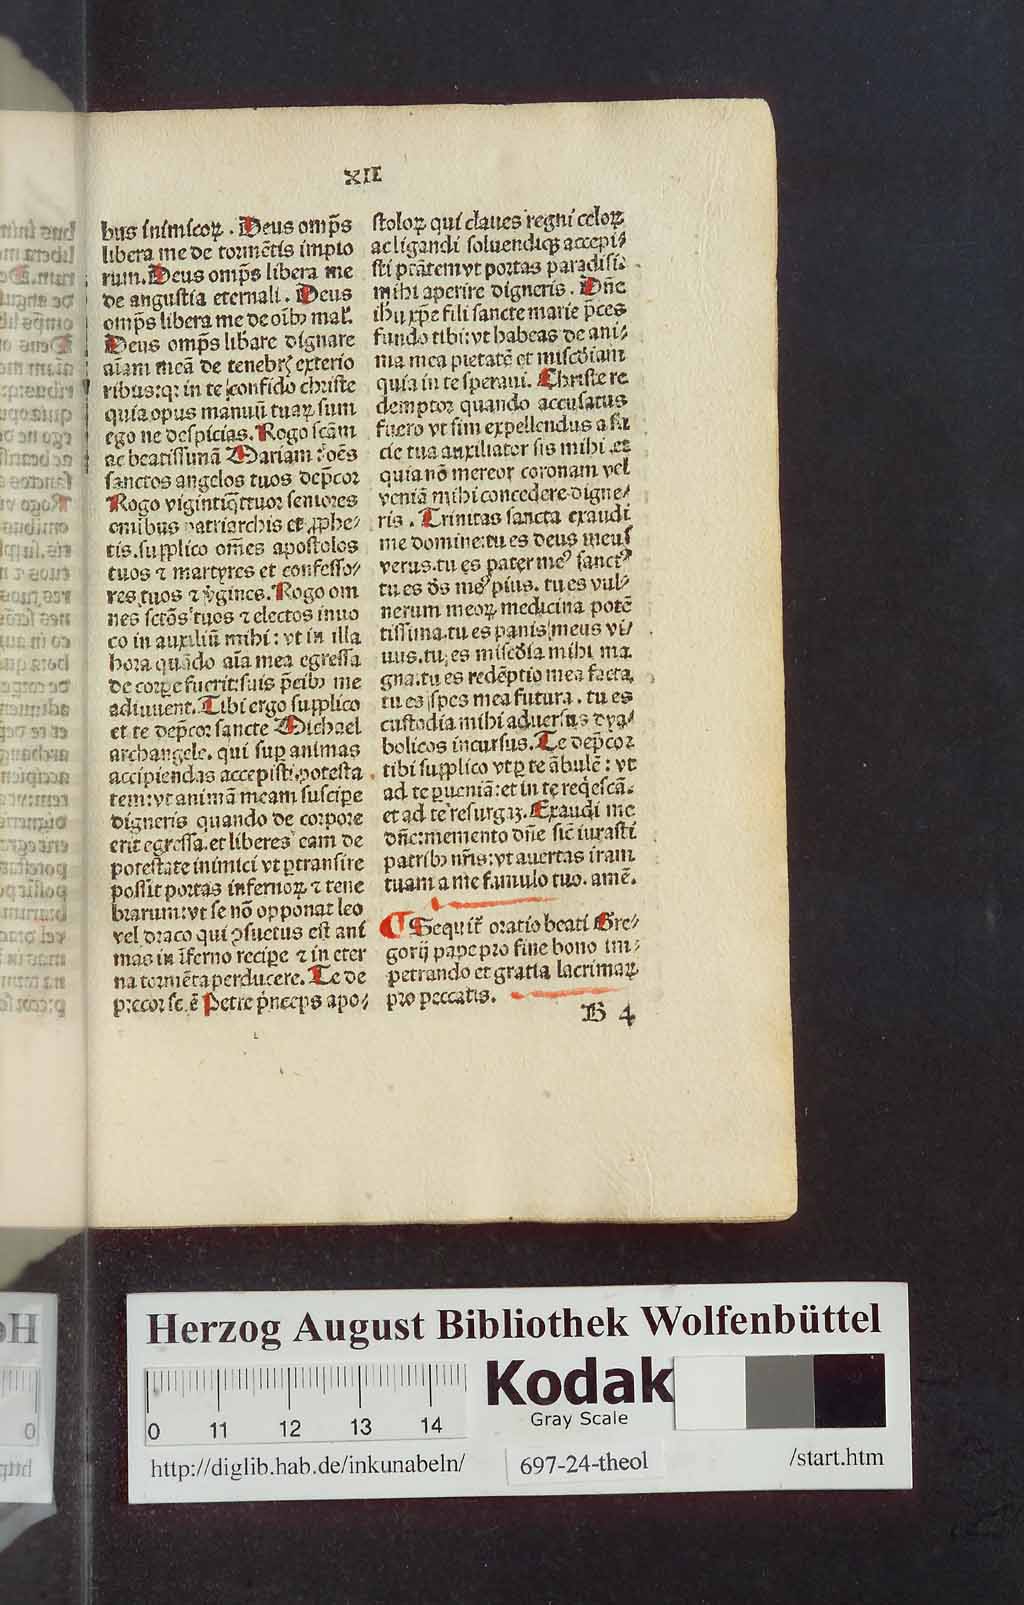 XII
bus inimicoꝝ. Deus omp̄s
libera me de tormētis impio
rum. Deus omp̄s libera me
de angustia eternali. Deus
omp̄s libera me de oībꝫ mal̄.
Deus omp̄s libare dignare
aīam meā de tenebrꝭ exterio
ribus: q: in te confido christe
quia opus manuū tuaꝝ sum
ego ne despicias. Rogo scām
ac beatissimā Mariam: oēs
sanctos angelos tuos dep̄cor
Rogo vigintiq̄ttuor seniores
omibus patriarchis et ꝓphe⸗
tis. supplico om̄es apostolos
tuos ⁊ martyres et confesso⸗
res tuos ⁊ v̄gines. Rogo om
nes sctōs tuos ⁊ electos inuo
co in auxiliū mihi: vt in illa
hora quādo aīa mea egressa
de corꝑe fuerit: suis p̄cibꝫ me
adiuuent. Tibi ergo supplico
et te dep̄cor sancte Michael
archangele. qui suꝑ animas
accipiendas accepisti potesta
tem: vt animā meam suscipe
digneris quando de corpore
erit egressa. et liberes eam de
potestate inimici vt ꝑtransire
possit portas infernoꝝ ⁊ tene
brarum: vt se nō opponat leo
vel draco qui ꝯsuetus est ani
mas in īferno recipe ⁊ in eter
na tormēta perducere. Te de
precor sc̄ē Petre p̄nceps apo⸗
stoloꝝ qui claues regni celoꝝ
ac ligandi soluendiqꝫ accepi⸗
sti ptātem vt portas paradisi
mihi aperire digneris. Dn̄e
ihu xp̄e fili sancte marie p̄ces
fundo tibi: vt habeas de ani⸗
ma mea pietatē et mis̄cdiam
quia in te speraui. Christe re
demptor quando accusatus
fuero vt sim expellendus a fa
cie tua auxiliator sis mihi et
quia nō mereor coronam vel
veniā mihi concedere digne⸗
ris. Trinitas sancta exaudi
me domine: tu es deus meus
verus. tu es pater meꝰ sanctꝰ
tu es d̄s meꝰ pius. tu es vul⸗
nerum meoꝝ medicina potē
tissima. tu es panis meus vi⸗
uus. tu es mis̄cdia mihi ma
gna. tu es redēptio mea facta
tu es spes mea futura. tu es
custodia mihi aduersus dya⸗
bolicos incursus. Te dep̄cor
tibi supplico vt ꝑ te ābulē: vt
ad te ꝑueniā: et in te req̇escā.
et ad te resurgaꝫ. Exaudi me
dn̄e: memento dn̄e sic̄ iurasti
patribꝫ nr̄is: vt auertas iram
tuam a me famulo tuo. amē.
¶ Sequit̄ oratio beati Gre⸗
gorij pape pro fine bono im⸗
petrando et gratia lacrimaꝝ
pro peccatis.
B 4
Herzog August Bibliothek Wolfenbüttel
0 11 12 13 14
Kodak
Gray Scale
http://diglib.hab.de/inkunabeln/ 697-24-theol /start.htm